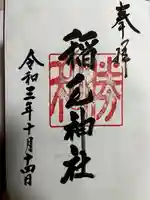 奉拝
稲毛神社
令和三年十月十四日